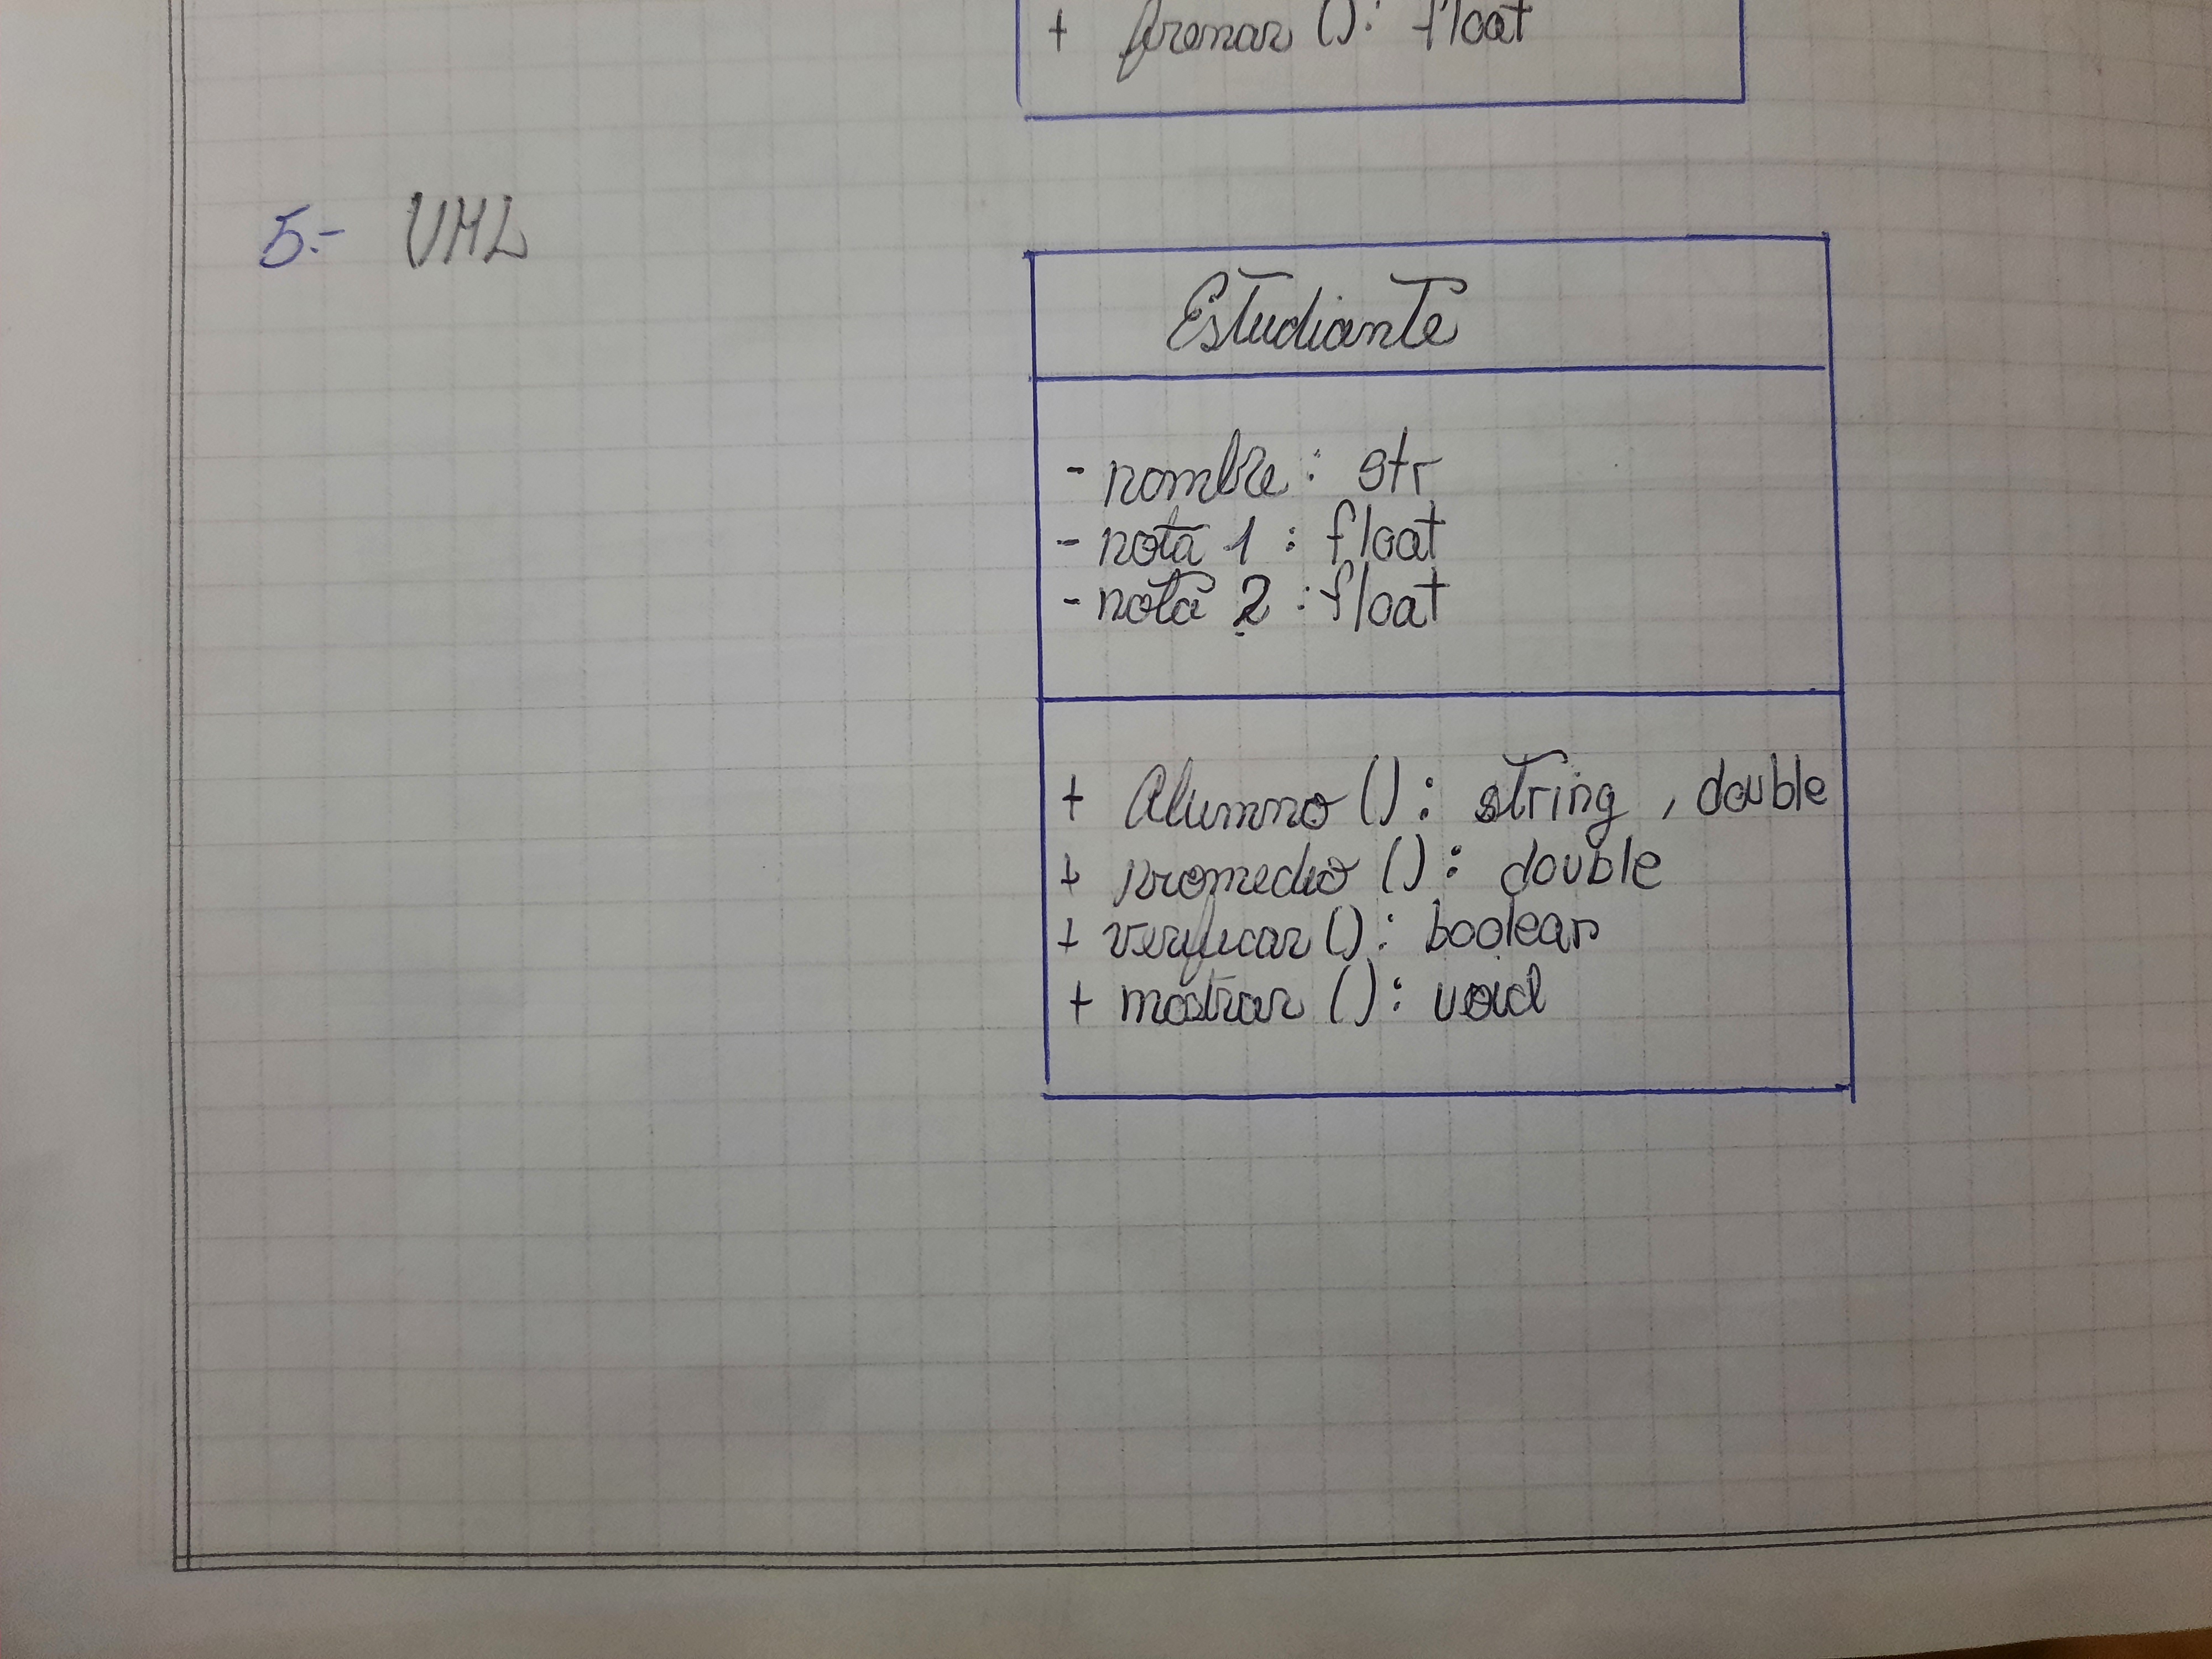 + frenar (): float
5.- UML
Estudiante
- nombre: str
- nota 1 : float
- nota 2 : float
+ Alumno (): string, double
+ promedio (): double
+ verificar (): boolean
+ mostrar (): void